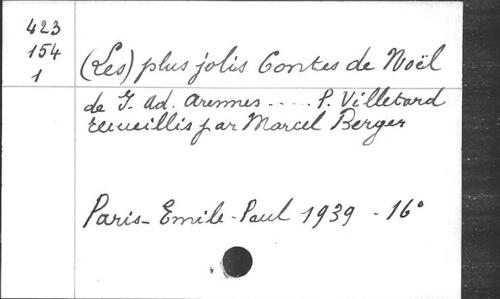 423
154
1
(Les) plus jolis Contes de Noël
de J. Ad. Arennes ..... P. Villetard
recueillis par Marcel Berger
Paris - Emile-Paul 1939 - 16°